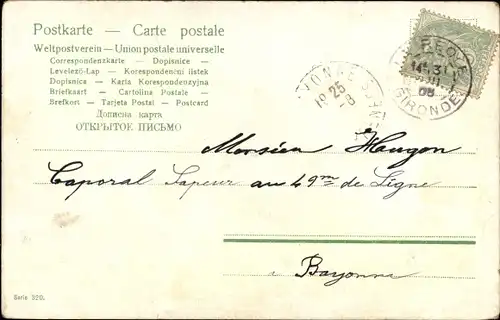 Postkarte — Carte postale
Weltpostverein — Union postale universelle
Correspondenzkarte — Dopisnice —
Levelező-Lap — Korespondencni listek
Dopisnica — Karta Korespondenzyjna
Briefkaart — Cartolina Postale —
Brefkort — Tarjeta Postal — Postcard
Дописна карта
ОТКРЫТОЕ ПИСЬМО
GIRONDE
08
25
Monsieur Haugon
Caporal Sapeur au 49me de Ligne
a Bayonne
Serie 320.